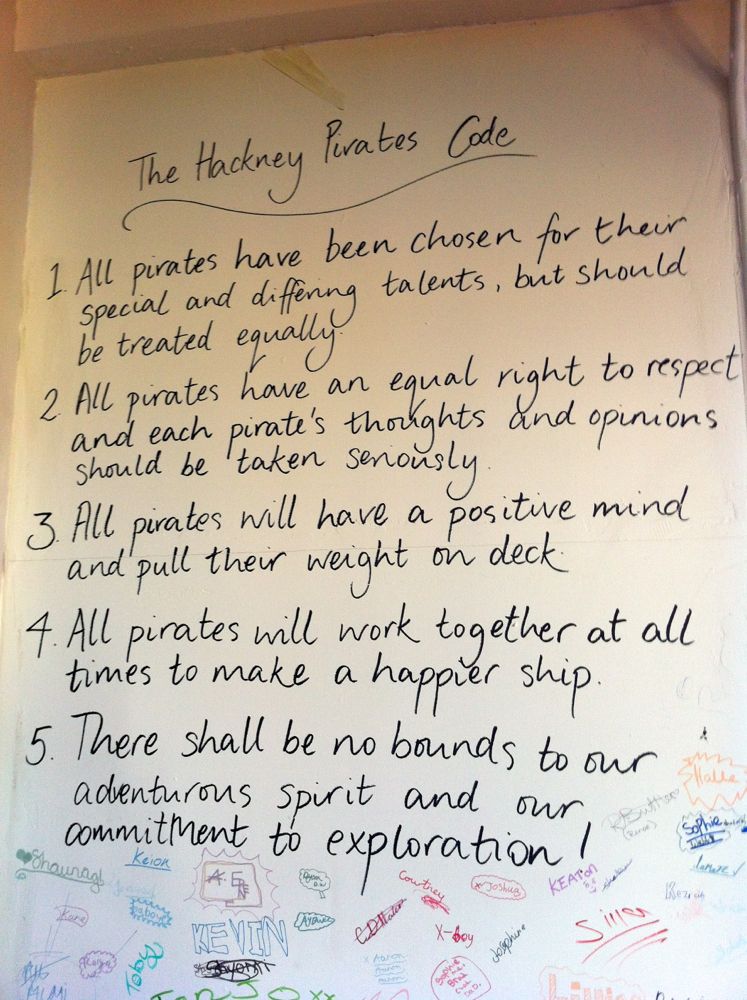 The Hackney Pirates Code
1. All pirates have been chosen for their
special and differing talents, but should
be treated equally.
2. All pirates have an equal right to respect
and each pirate's thoughts and opinions
should be taken seriously.
3. All pirates will have a positive mind
and pull their weight on deck.
4. All pirates will work together at all
times to make a happier ship.
5. There shall be no bounds to our
adventurous spirit and our
committment to exploration!
Halle
Sophie
Shaunagh
Keion
Courtney
x Joshua
KEATON
Kara
KEVIN
X-Boy
Josephine
Toby
x Aaron
Aaron
Aaron
Sophie